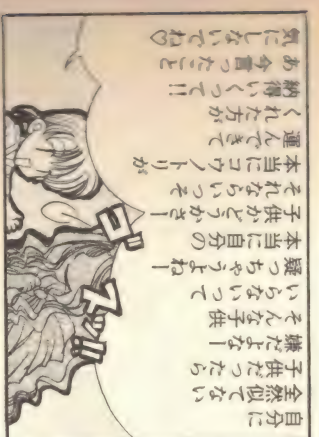 自分に
全然似てない
子供だったら
嫌だよなー
そんな子供
いらないって
疑っちゃうよねー
本当に自分の
子供かどうかさー
それならいっそ
本当にコウノトリが
運んできて
くれた方が
納得いくって!!
あ 今言ったこと
気にしないでね♡
ゴ
スッ!!